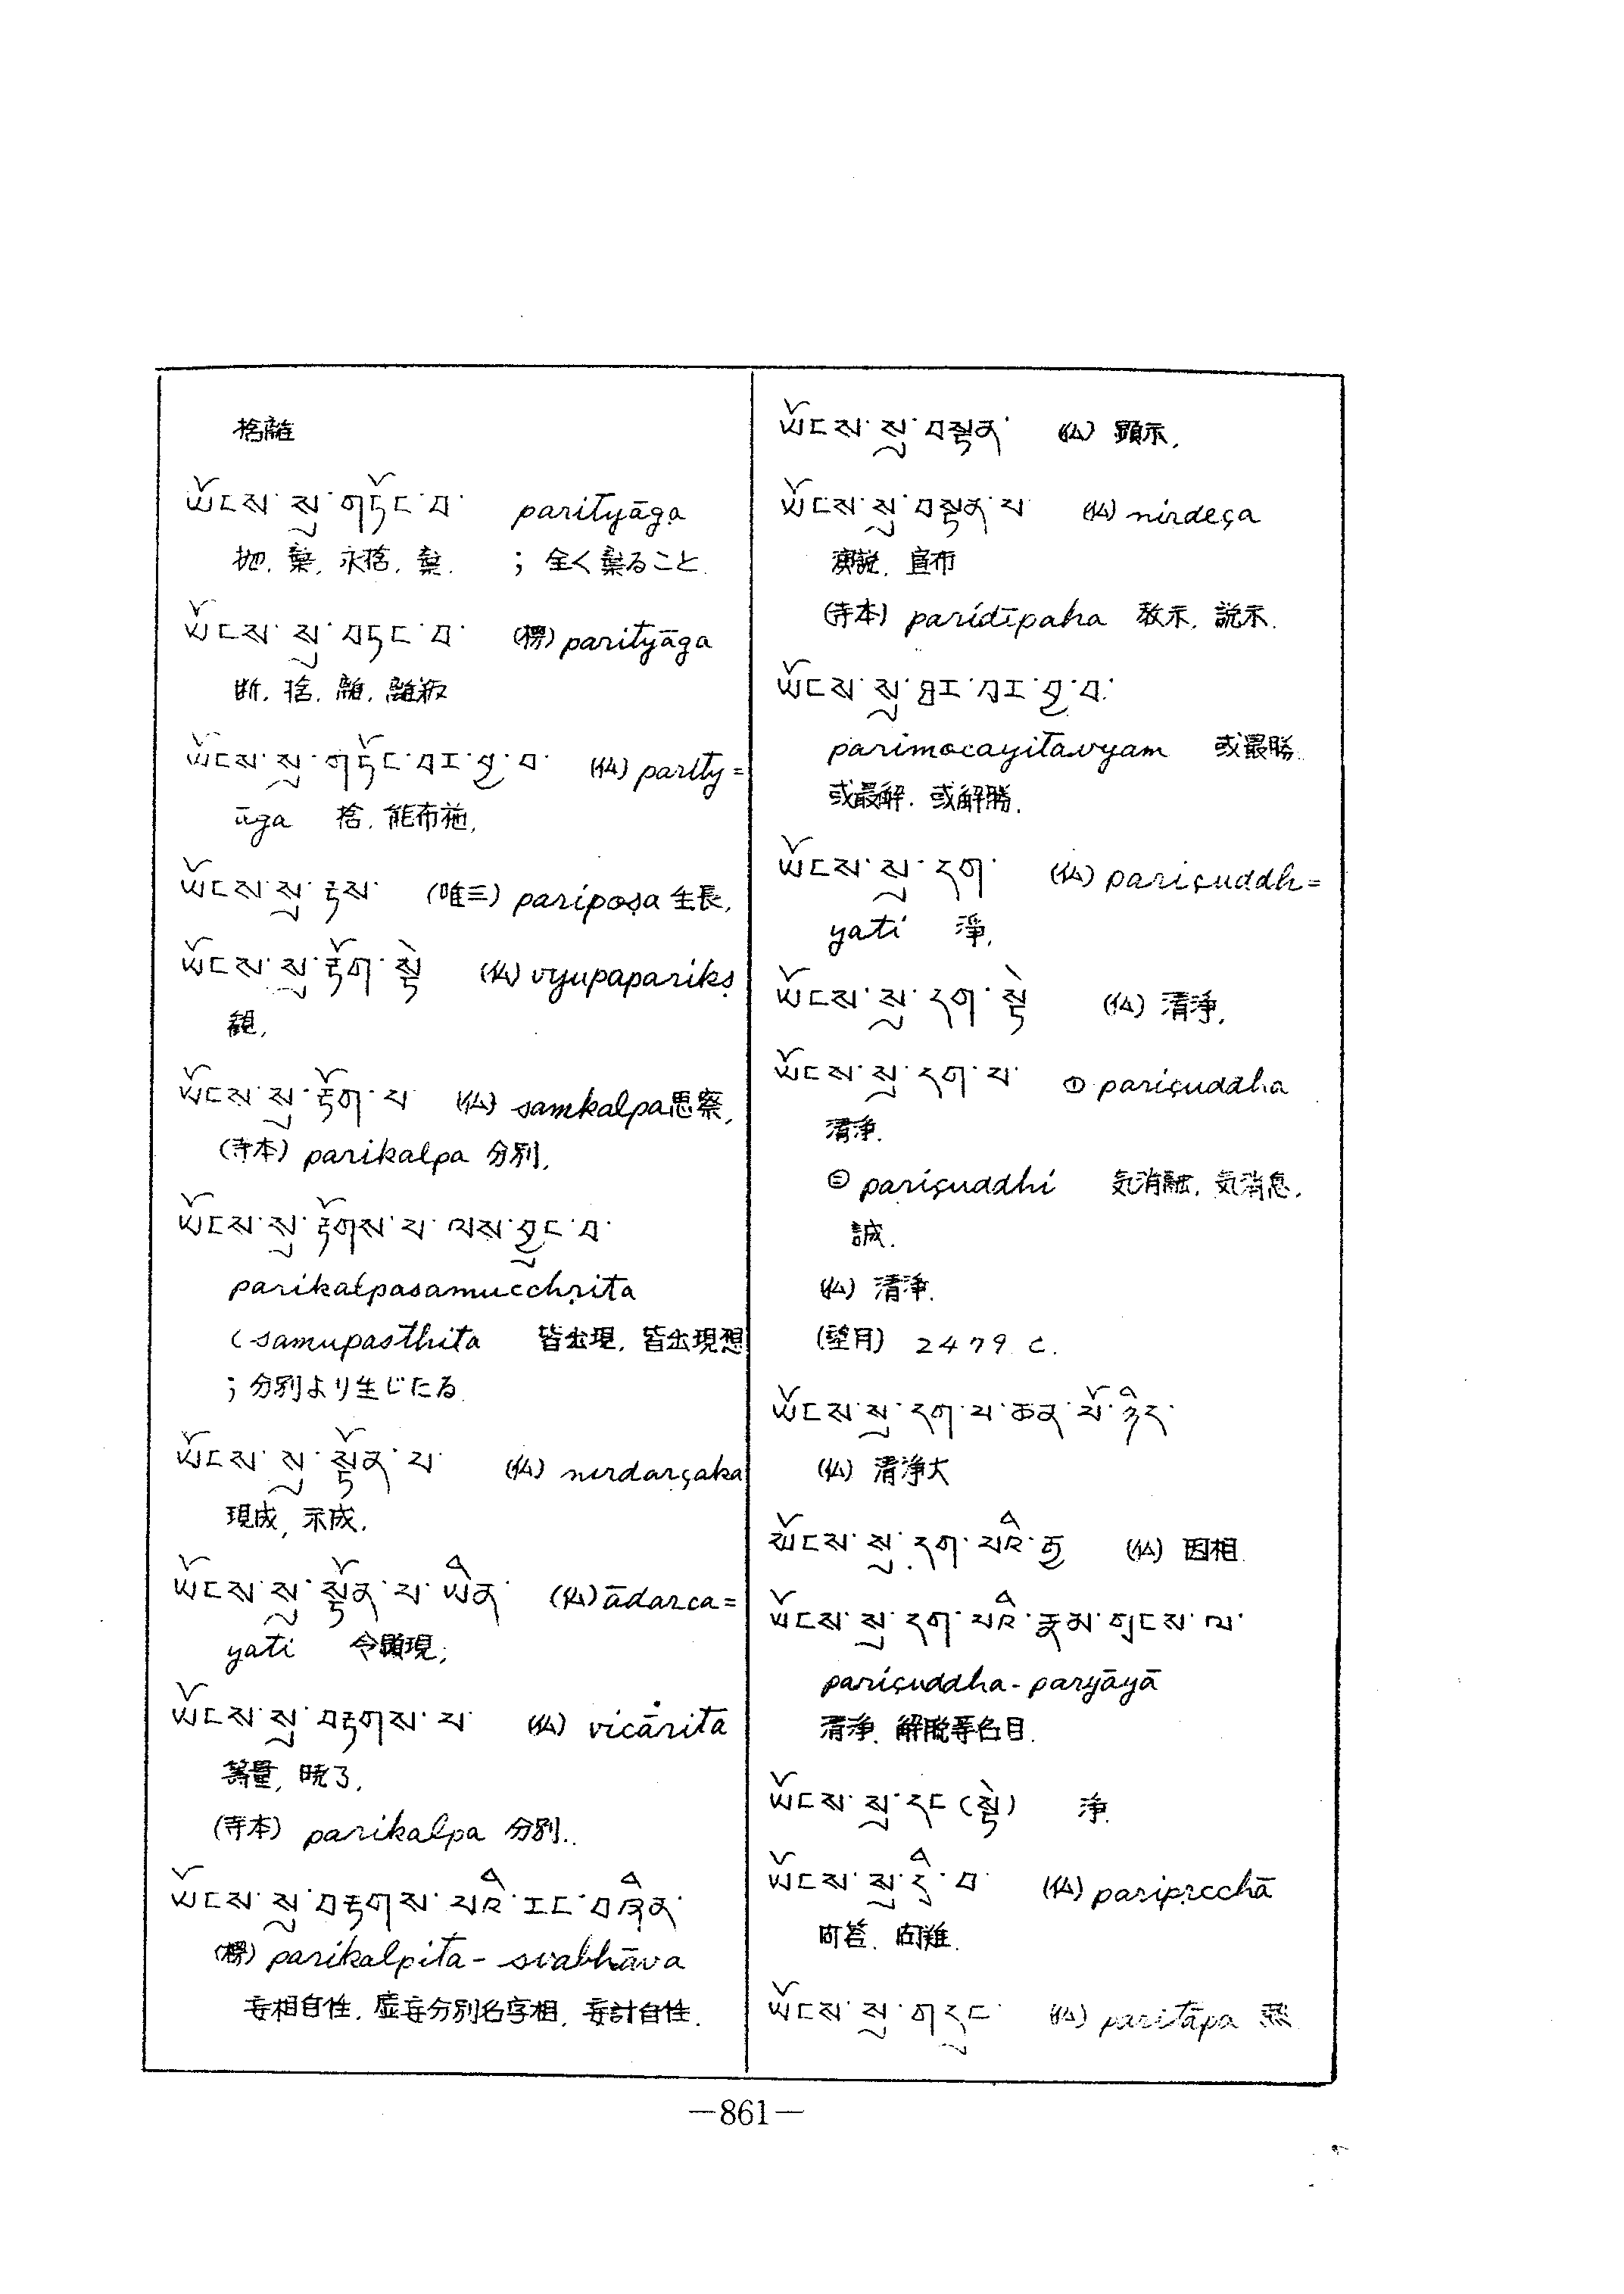 捨離
ཡོངས་སུ་གཏོང་བ་ parityāga
抛, 棄, 永捨, 棄. ; 全く棄ること.
ཡོངས་སུ་བཏང་བ་ (楞) parityāga
断, 捨, 離, 離叛
ཡོངས་སུ་གཏོང་བར་བྱ་བ་ (仏) parity=
āga 捨, 能布施,
ཡོངས་སུ་རྟས་ (唯三) paripoṣa 生長,
ཡོངས་སུ་རྟོག་སྟེ (仏) vyupaparikṣ
観,
ཡོངས་སུ་རྟོག་པ་ (仏) samkalpa 思察,
(寺本) parikalpa 分別,
ཡོངས་སུ་རྟོགས་པ་ལས་བྱུང་བ་
parikalpasamucchṛita
(samupasthita 皆出現, 皆出現想
; 分別より生じたる.
ཡོངས་སུ་སྟོན་པ་ (仏) nirdarçaka
現成, 示成,
ཡོངས་སུ་སྟོན་པ་ཡིན་ (仏) ādarca=
yati 令顕現;
ཡོངས་སུ་བརྟགས་པ་ (仏) vicārita
籌量, 暁了,
(寺本) parikalpa 分別..
ཡོངས་སུ་བརྟགས་པའི་རང་བཞིན་
(楞) parikalpita - svabhāva
妄相自性, 虚妄分別名字相, 妄計自性.
ཡོངས་སུ་བསྟན་ (仏) 顕示,
ཡོངས་སུ་བསྟན་པ་ (仏) nirdeça
演説, 宣布
(寺本) paridīpaha 教示, 説示.
ཡོངས་སུ་ཐར་བར་བྱ་བ་
parimocayitavyam 或最勝.
或最解. 或解勝.
ཡོངས་སུ་དག་ (仏) pariçuddh=
yati 淨,
ཡོངས་སུ་དག་སྟེ (仏) 清淨,
ཡོངས་སུ་དག་པ་ ① pariçuddha
清淨.
② pariçuddhi 気消融, 気消息,
誠.
(仏) 清淨.
(望月) 2479 c.
ཡོངས་སུ་དག་པ་ཆན་པོ་ཉིད་
(仏) 清淨大
ཡོངས་སུ་དག་པའི་རྒྱུ (仏) 因相.
ཡོངས་སུ་དག་པའི་རྣམ་གྲངས་ལ་
pariçuddha - paryāyā
清淨, 解脱等名目.
ཡོངས་སུ་དང་(སྟེ) 淨.
ཡོངས་སུ་དྲི་བ་ (仏) paripṛcchā
問答, 問難.
ཡོངས་སུ་གདུང་ (仏) paritāpa 熱
—861—